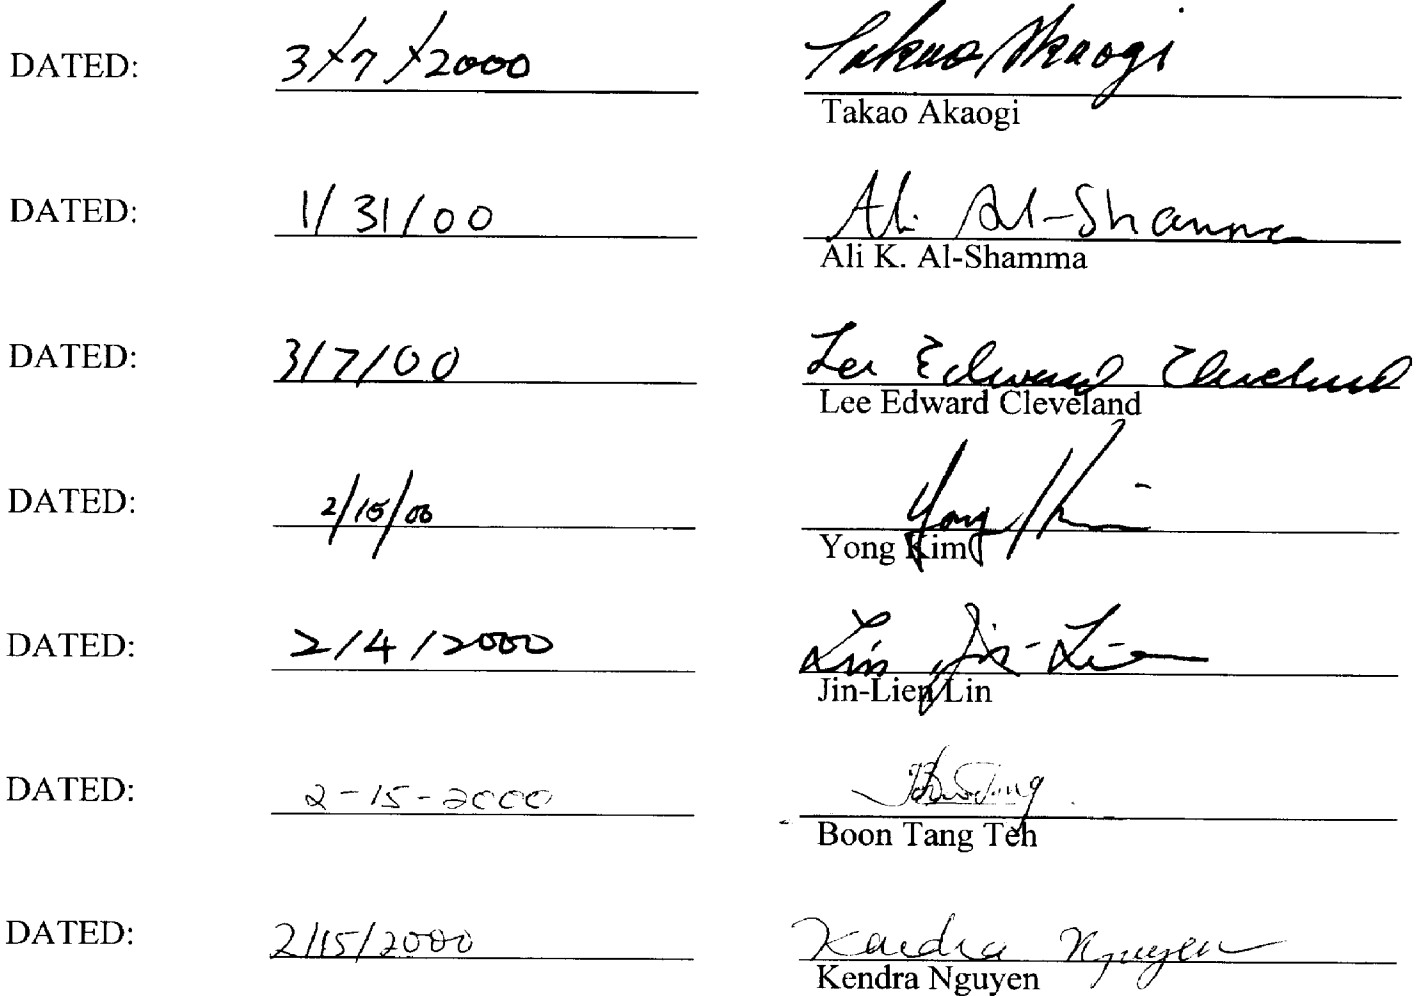 DATED: 3/7/2000 Takao Akaogi
Takao Akaogi
DATED: 1/31/00 Ali Al-Shamma
Ali K. Al-Shamma
DATED: 3/7/00 Lee Edward Cleveland
Lee Edward Cleveland
DATED: 2/15/00 Yong Kim
Yong Kim
DATED: 2/4/2000 Lin, Jin-Lien
Jin-Lien Lin
DATED: 2-15-2000
Boon Tang Teh
DATED: 2/15/2000 Kendra Nguyen
Kendra Nguyen